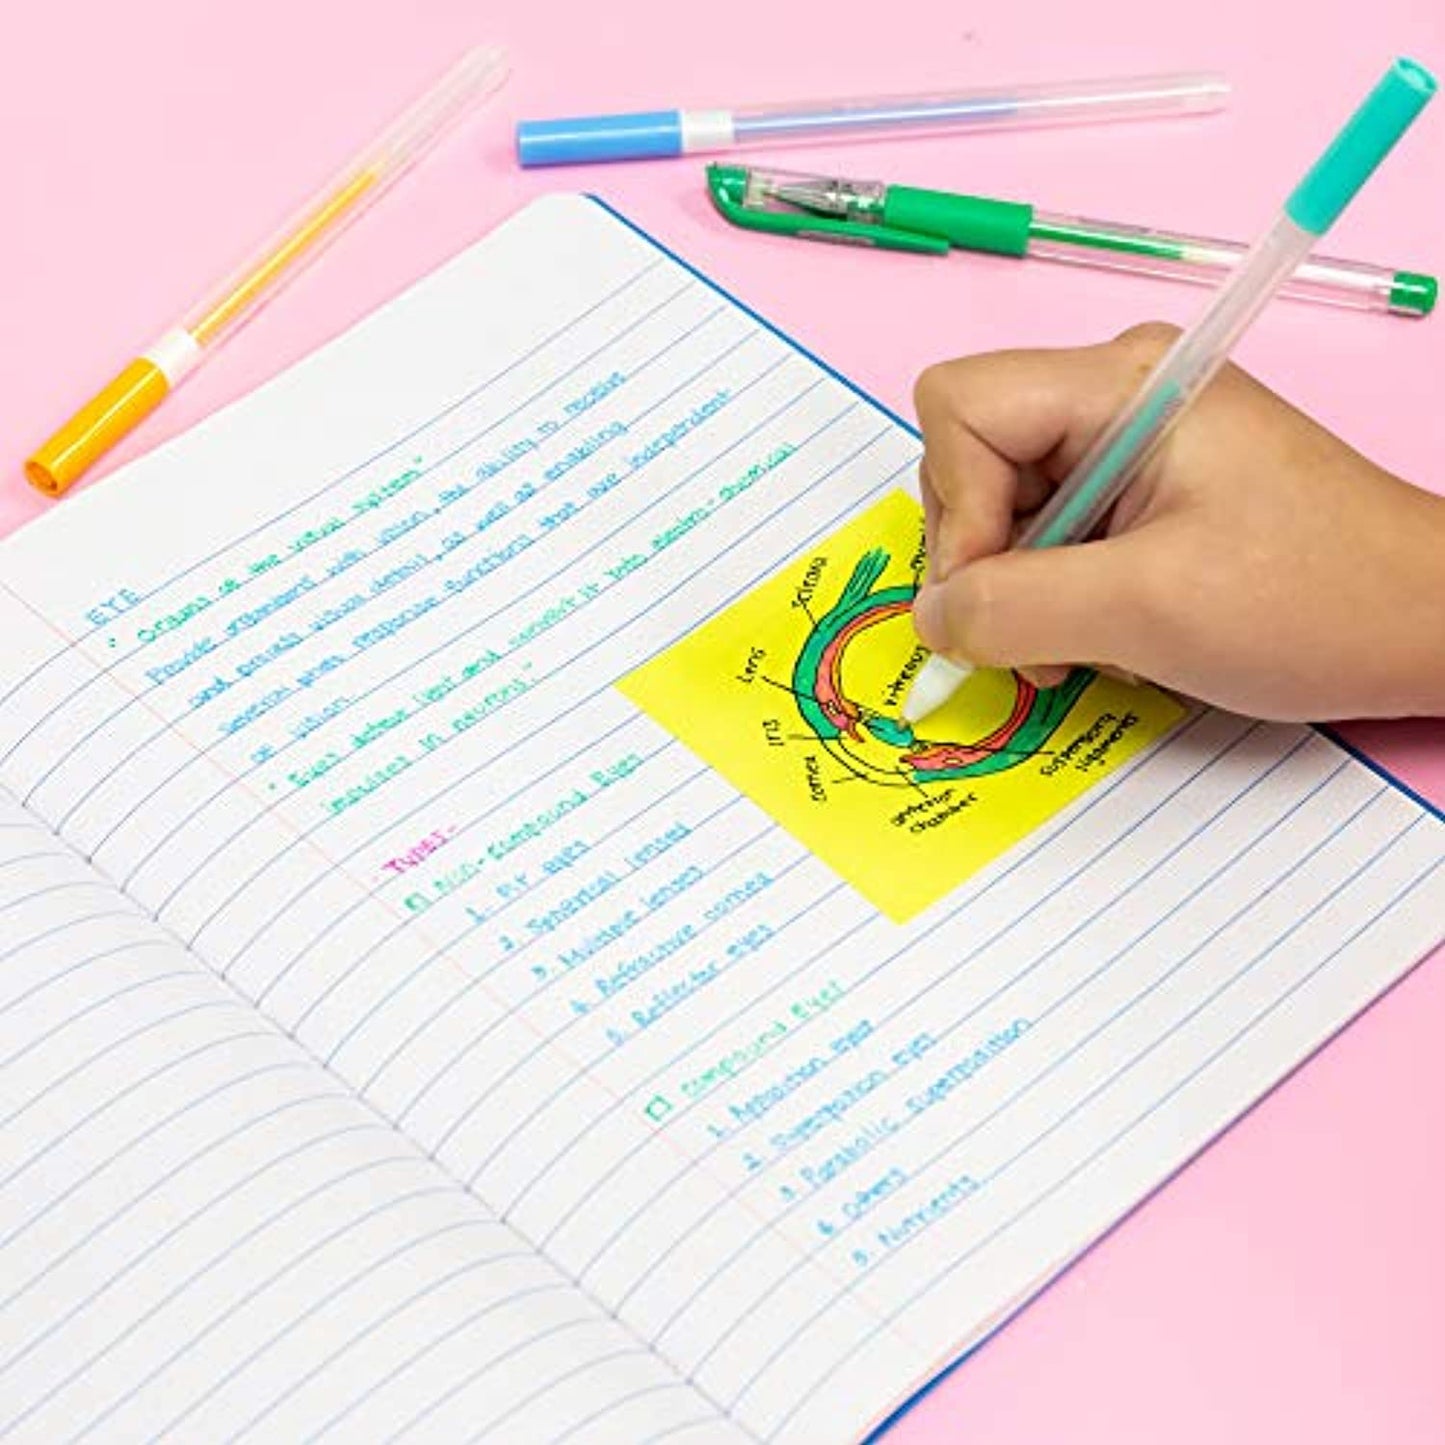 EYE
• Organs of the visual system"
Provide organisms with vision, the ability to receive
and process visual detail, as well as enabling
several photo response functions that are independent
of vision
• Eyes detect light and convert it into electro-chemical
impulses in neurons."
Types-
Non-compound Eyes
1. Pit eyes
2. Spherical lenses
3. Multiple lenses
4. Refractive cornea
5. Reflector eyes
Compound Eyes
1. Apposition eyes
2. Superposition eyes
3. Parabolic superposition
4. Others
5. Nutrients
sclera
Lens
Iris
cornea
anterior
chamber
suspensory
ligaments
vitreous